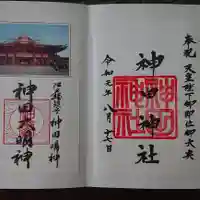 奉祝 天皇陛下御即位御大典
神田神社
令和元年八月十七日
神田明神
神田大明神